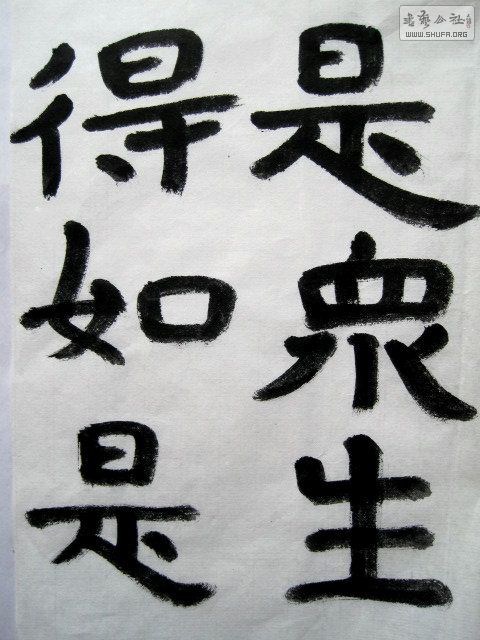 是衆生
得如是
書藝公社
WWW.SHUFA.ORG